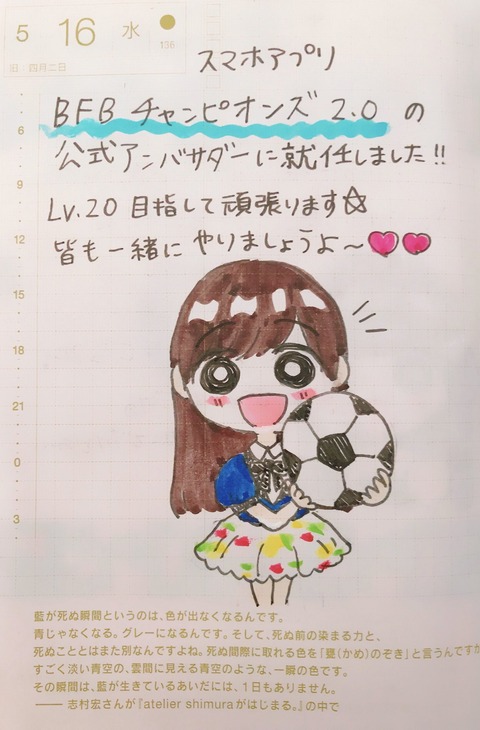 5 16 水
136
旧:四月二日
スマホアプリ
BFB チャンピオンズ 2.0 の
公式アンバサダーに就任しました!!
Lv.20 目指して頑張ります☆
皆も一緒に やりましょうよ〜
6
9
12
15
18
21
0
3
藍が死ぬ瞬間というのは、色が出なくなるんです。
青じゃなくなる。グレーになるんです。そして、死ぬ前の染まる力と、
死ぬこととはまた別なんですよね。死ぬ間際に取れる色を「甕(かめ)のぞき」と言うんですが
すごく淡い青空の、雲間に見える青空のような、一瞬の色です。
その瞬間は、藍が生きているあいだには、1日もありません。
—— 志村宏さんが『atelier shimuraがはじまる。』の中で